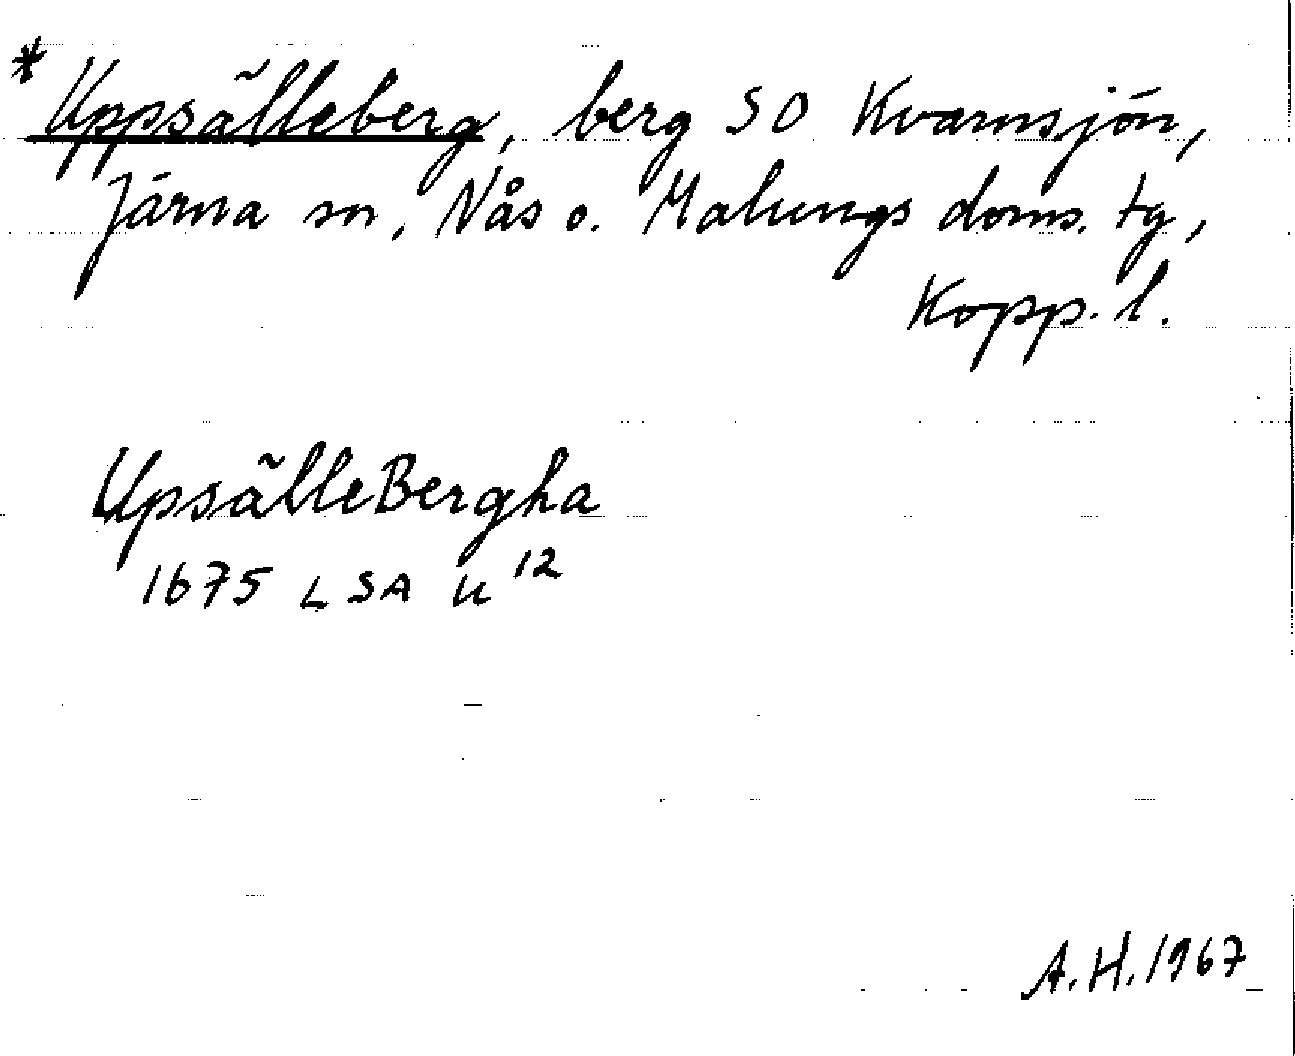 *Uppsälleberg, berg SO Kvarnsjön,
Järna sn, Nås o. Malungs doms. tg,
Kopp. l.
UpsälleBergha
1675 LSA U 12
A.H. 1967